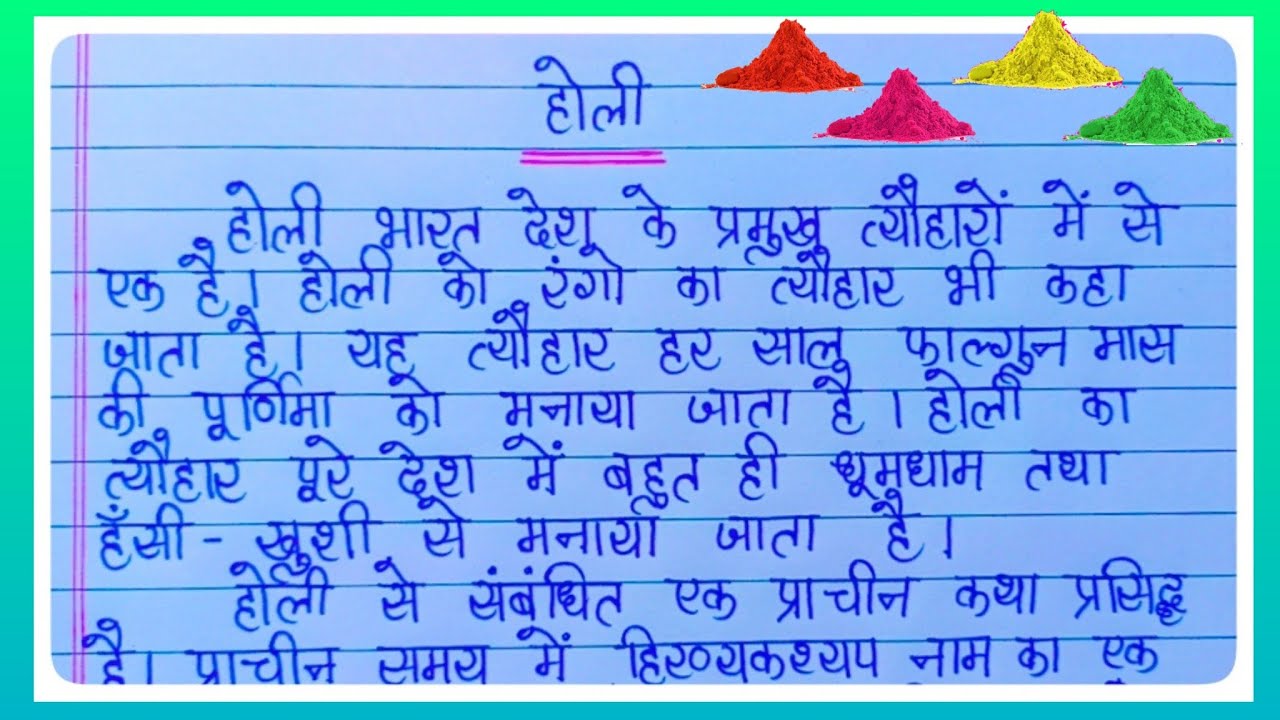 होली
होली भारत देश के प्रमुख त्यौहारों में से
एक है। होली को रंगो का त्यौहार भी कहा
जाता है। यह त्यौहार हर साल फाल्गुन मास
की पूर्णिमा को मनाया जाता है। होली का
त्यौहार पूरे देश में बहुत ही धूमधाम तथा
हँसी - खुशी से मनाया जाता है।
होली से संबंधित एक प्राचीन कथा प्रसिद्ध
है। प्राचीन समय में हिरण्यकश्यप नाम का एक